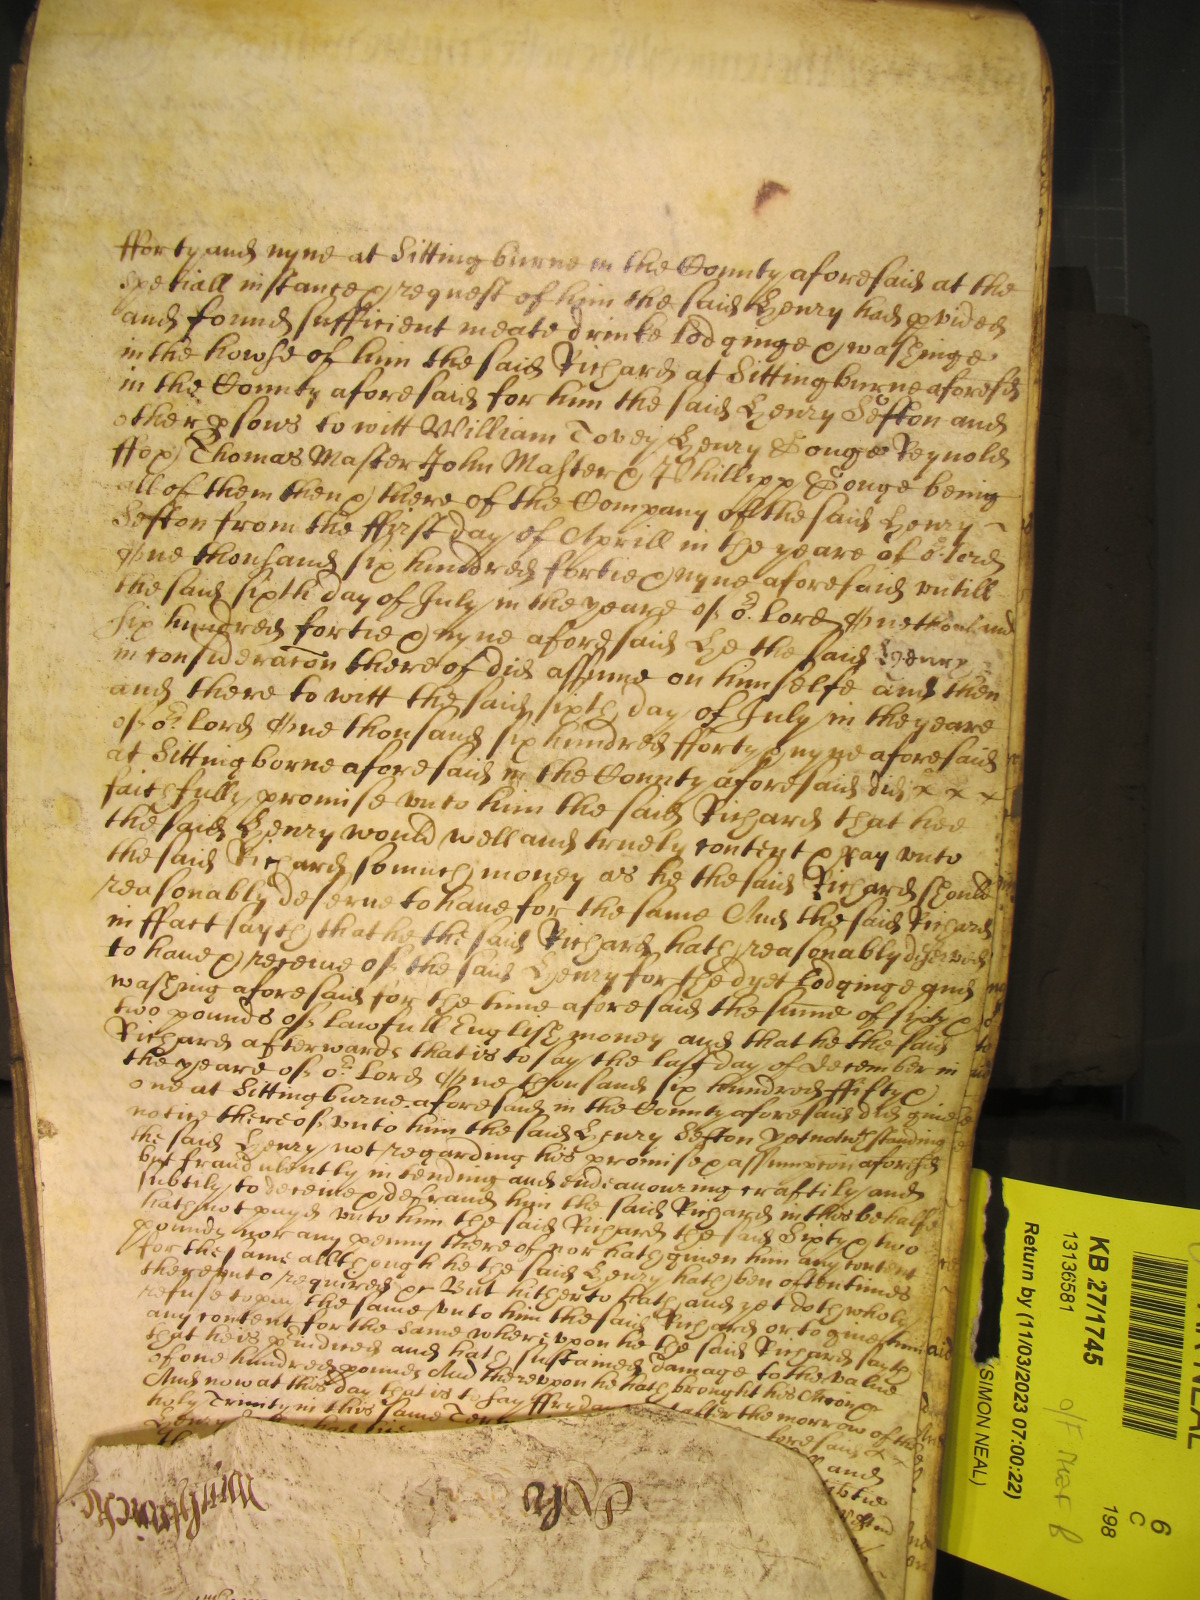 fforty and nyne at Sittingburne in the County aforesaid at the
speciall instance & request of him the said Henry had pvided
and found sufficient meate drinke lodginge & washinge
in the howse of him the said Richard at Sittingburne aforesd
in the County aforesaid for him the said Henry Sefton and
other psons to witt William Tovey Henry Rynolds
Thomas Master John Master & Phillipp being
all of them then & there of the Company of the said Henry
Sefton from the ffirst day of Aprill in the yeare of or lord
One thousand six hundred fortie & nyne aforesaid untill
the said sixth day of July in the yeare of or Lord One thousand
six hundred fortie & nyne aforesaid He the said Henry
in consideracon thereof did assume on himselfe and then
and there to witt the said sixth day of July in the yeare
of or Lord One thousand six hundred fforty & nyne aforesaid
at Sittingborne aforesaid in the County aforesaid did x x x
faithfully promise unto him the said Richard that hee
the said Henry would well and truely content & pay unto
the said Richard somuch money as he the said Richard should
reasonably deserve to have for the same And the said Richard
in ffact sayth that he the said Richard hath reasonably deserved
to have & receive of the said Henry for the dyet lodginge and
washing aforesaid for the time aforesaid the sume of sixty &
two pounds of lawfull English money and that he the said
Richard afterwards that is to say the last day of December in
the yeare of or Lord One thousand six hundred ffifty &
one at Sittingburne aforesaid in the County aforesaid did give
notice thereof unto him the said Henry Sefton yet notwthstanding
the said Henry not regarding his promise & assumpcon aforesd
but fraudulently intending and endeavouring craftily and
subtily to deceive & defraud him the said Richard in this behalfe
hath not payd unto him the said Richard the said Sixty & two
pounds nor any penny thereof nor hath given him any content
for the same allthough he the said Henry hath ben oftentimes
thereunto required &c But hitherto hath and yet doth wholy
refuse to pay the same unto him the said Richard or to give him
any content for the same whereupon he the said Richard sayth
that he is piudiced and hath sustained damage to the value
of one hundred pounds And thereupon he hath brought his Accon &c
And now at this day that is to say ffryday after the morrow of the
holy Trinity in this same
Henry
and
KB 27/1745
13136581
Return by (11/03/2023 07:00:22)
(SIMON NEAL)
6
C
198